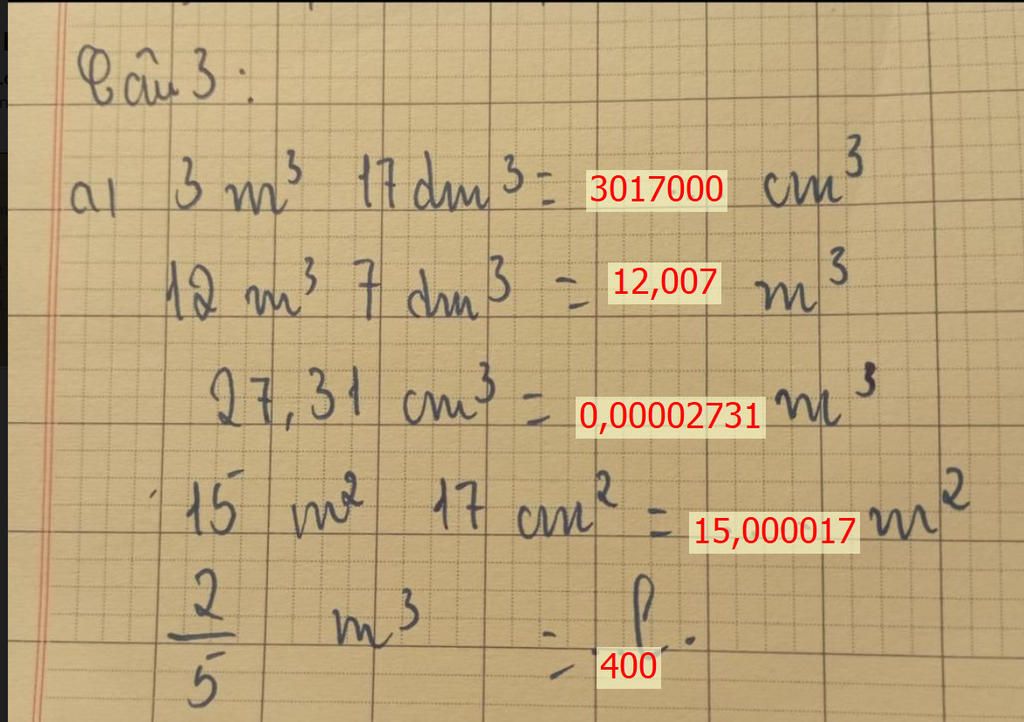 Câu 3:
a) 3 m³ 17 dm³ = 3017000 cm³
12 m³ 7 dm³ = 12,007 m³
27,31 cm³ = 0,00002731 m³
15 m² 17 cm² = 15,000017 m²
2/5 m³ = 400 l.